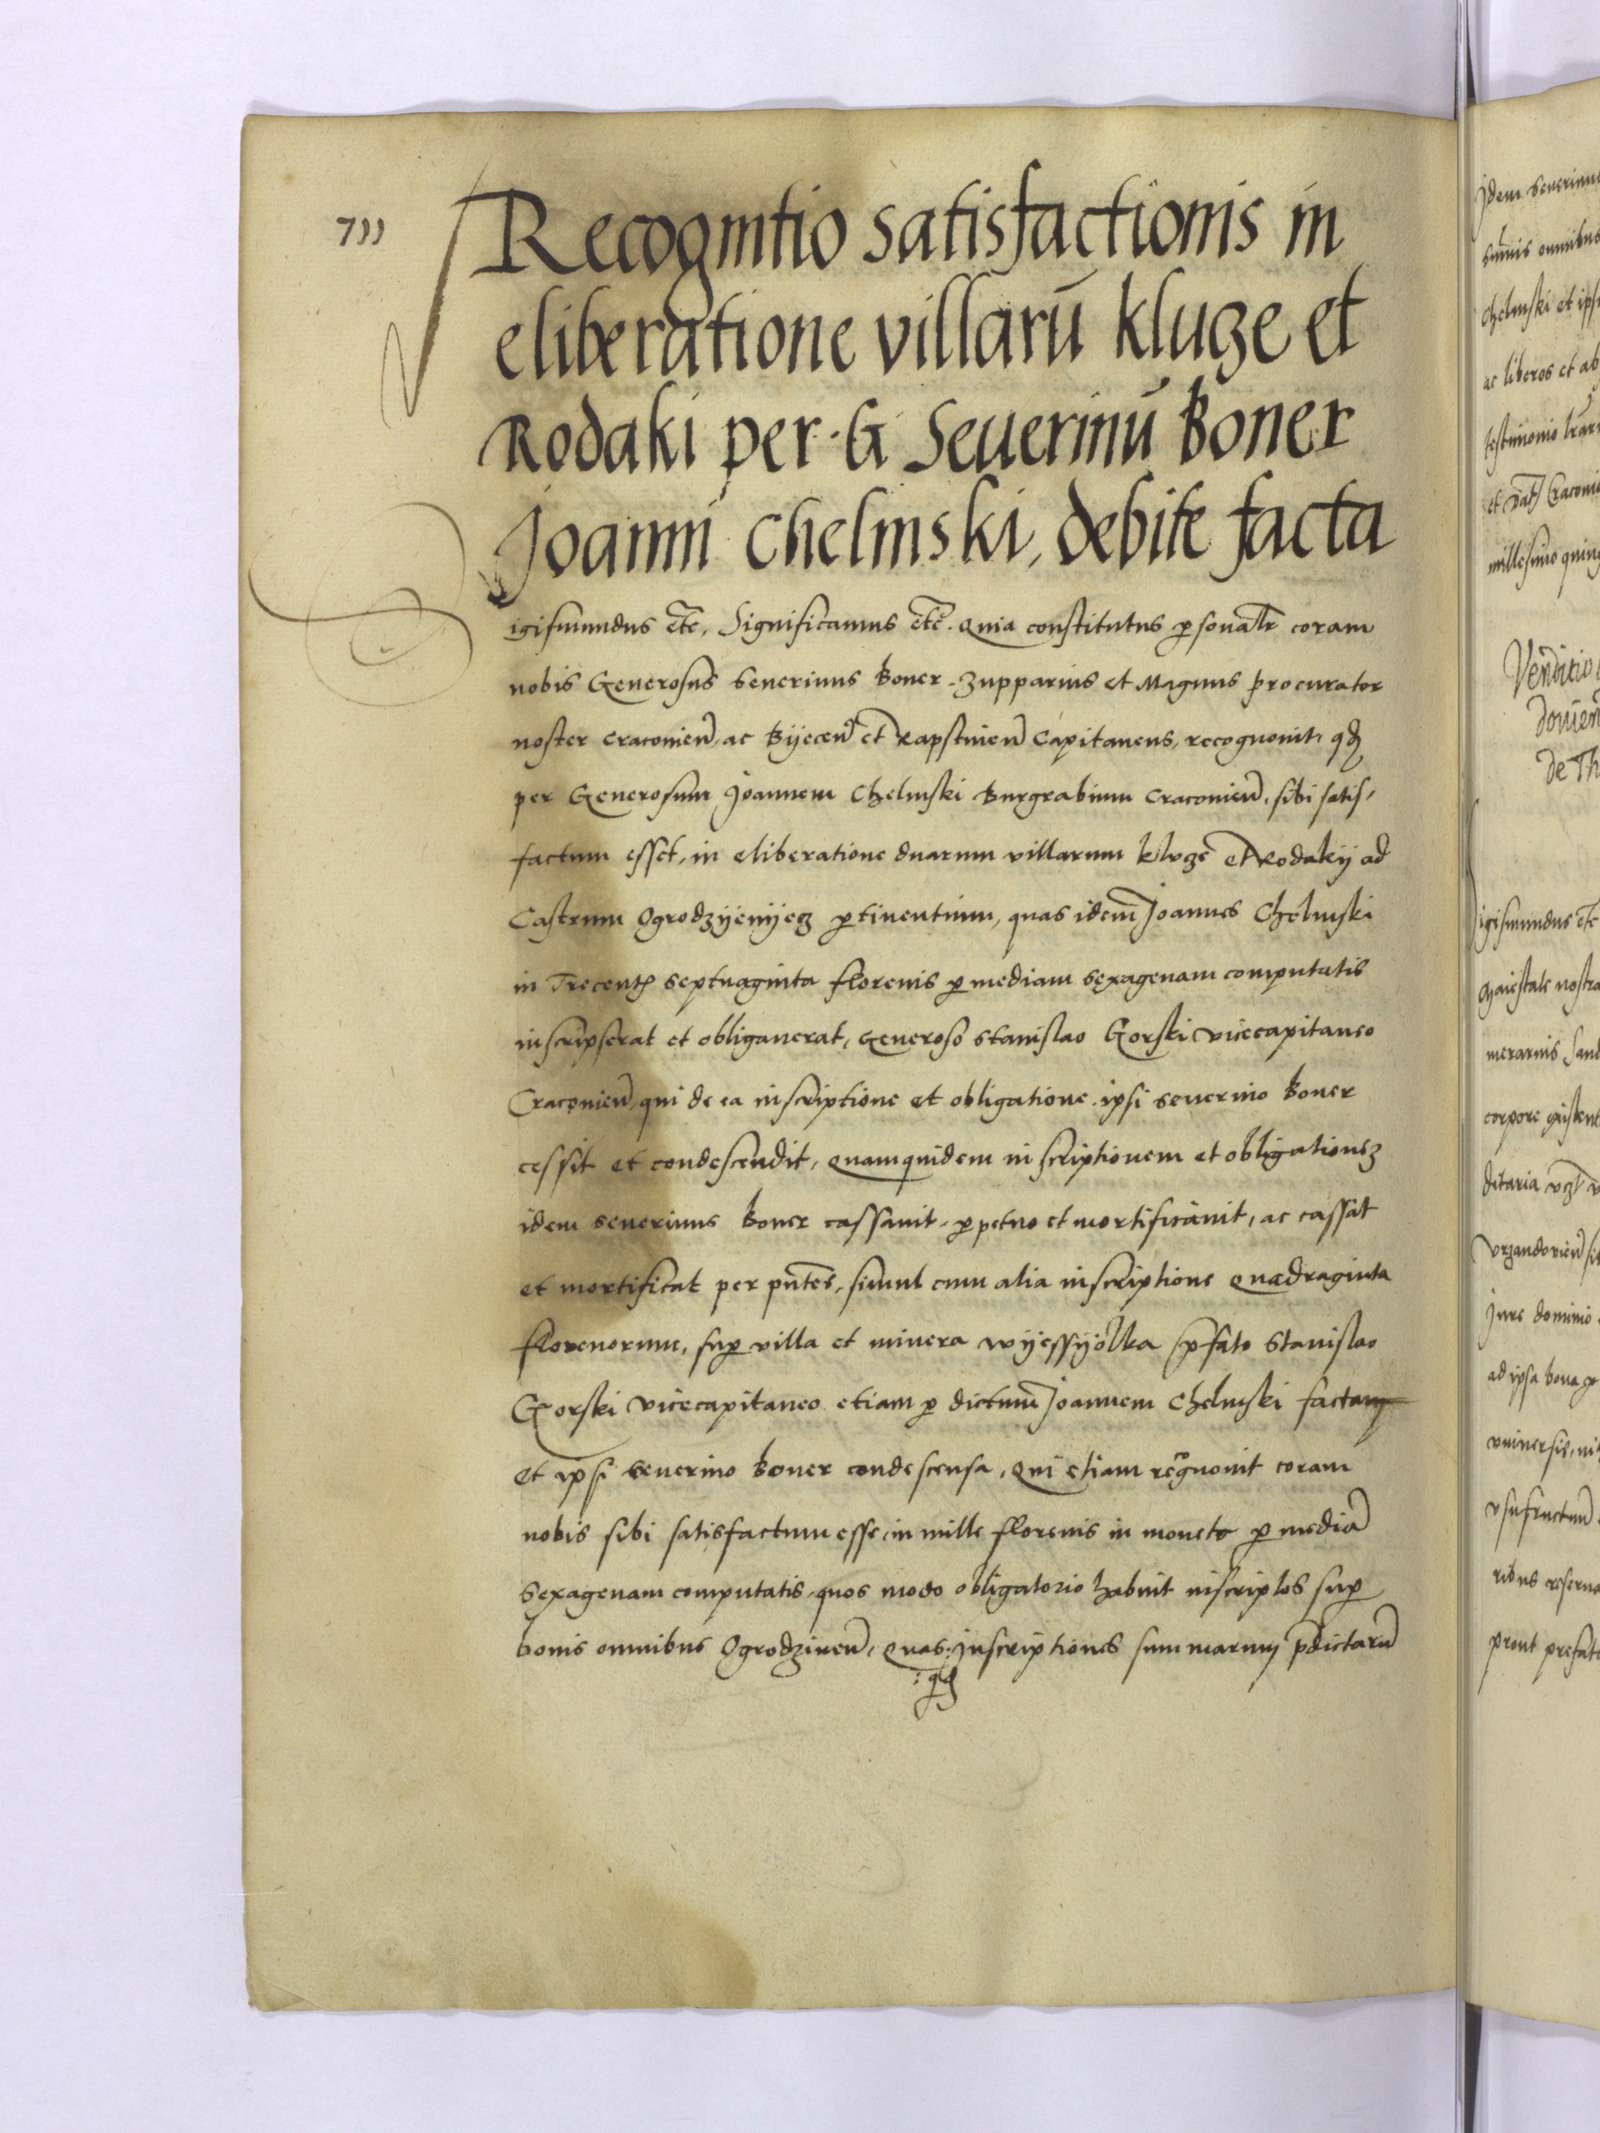 711
Recognitio satisfactionis in
eliberatione villarū kluze et
Rodaki per G Seuerinū Boner
Joanni Chelmski, debite facta
Sigismundus etc̄. Significamus etc̄. Quia constitutus ꝑsonalr̄ coram
nobis Generosus Seuerinus Boner Zupparius et Magnus procurator
noster cracovien̄, ac Byecen̄ et Rapstinen̄ Capitaneus, recognouit, qđ
per Generosum Joannem Chelmski Burgrabium cracovien̄, sibi satis-
factum esset, in eliberatione duarum villarum kluze et Rodaky ad
Castrum Ogrodzyenyecz ꝑtinentium, quas idem Joannes Chelmski
in Trecentꝭ septuaginta florenis ꝑ mediam sexagenam computatis
inscripserat et obligauerat, Generoso Stanislao Gorski vicecapitaneo
Cracovien̄, qui de ea inscriptione et obligatione ipsi seuerino Boner
cessit et condescendit, Quamquidem inscriptionem et obligationez
idem seuerinus Boner cassauit ꝑpetuo et mortificauit, ac cassat
et mortificat per pn̄tes, simul cum alia inscriptione Quadraginta
florenorum, suꝑ villa et minera wyessyolka p̄fato Stanislao
Gorski vicecapitaneo etiam ꝑ dictum Joannem Chelmski factam
et ipsi seuerino Boner condescensa, Qui etiam recognouit coram
nobis sibi satisfactum esse in mille florenis in moneta ꝑ mediā
sexagenam computatis, quos modo obligatorio habuit inscriptos suꝑ
bonis omnibus Ogrodzinen̄, Quas Inscriptiones summarum p̄dictarū
:qđ
Idem Seuerinus
summis omnibus
Chelmski et ips
ac liberos et ab
testimonio lr̄ar
et datꝭ Cracovie
millesimo quing
Venditio
donien
de Th
Sigismundus etc̄
Maiestate nostra
merarius Sand
corpore existent
ditaria
vrzandovien̄
Jure dominio
ad ipsa bona
vniuersis
vsufructum
ribus reserua
prout prefat